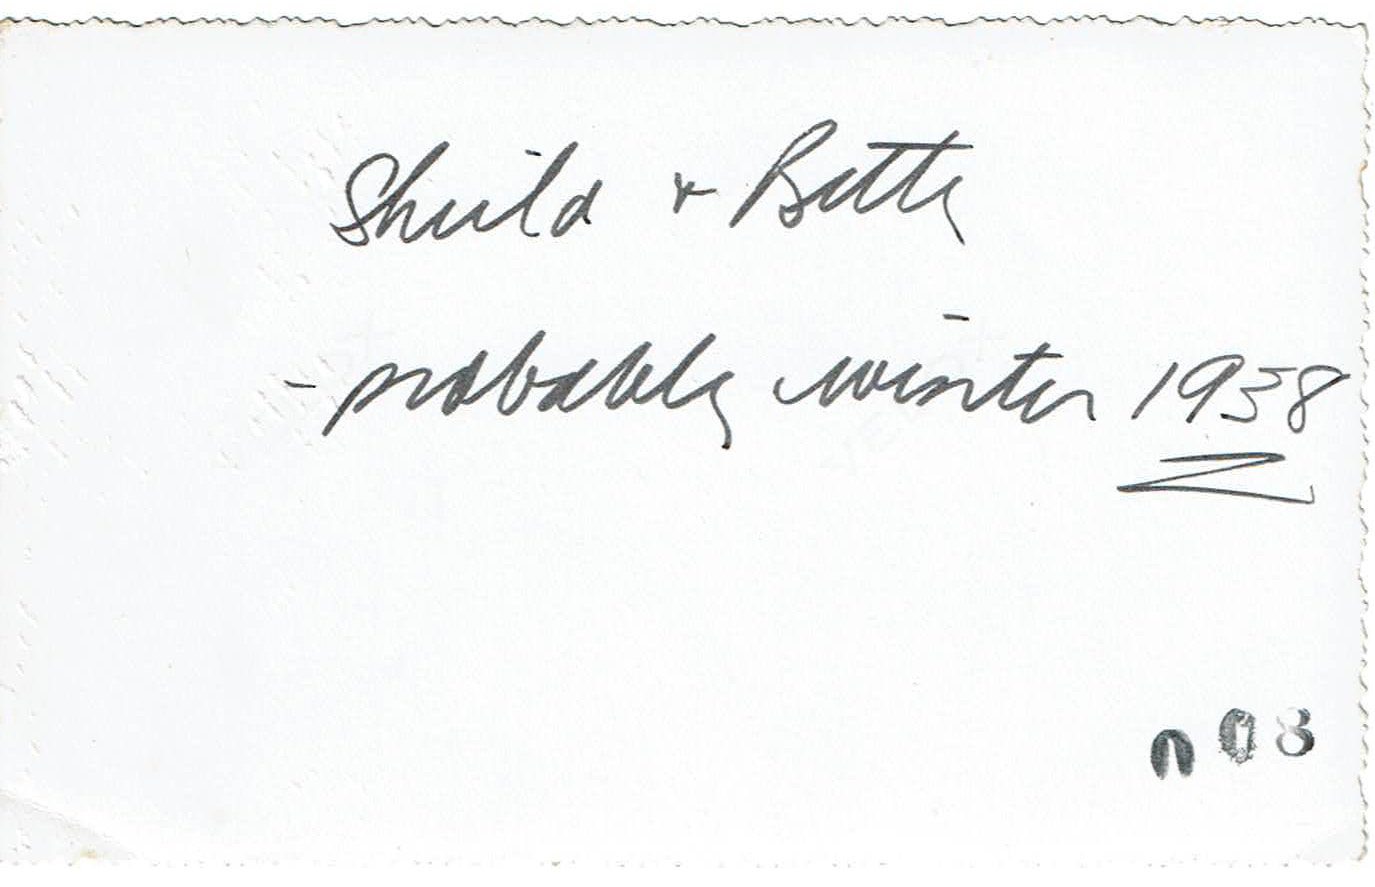 Sheila + Betty
- probably winter 1938
008